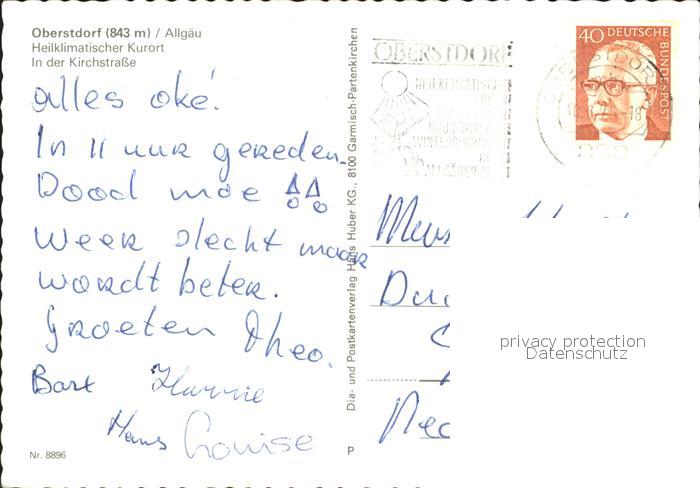 Oberstdorf (843 m) / Allgäu
Heilklimatischer Kurort
In der Kirchstraße
alles oké!
In 11 uur gereden.
Dood moe !!
Weer slecht maar
wordt beter.
Groeten Theo.
Bart Harrie
Hans Louise
Nr. 8896
Dia- und Postkartenverlag Hans Huber KG., 8100 Garmisch-Partenkirchen
P
OBERSTDORF
HEILKLIMATISCHER
WINTERSPORT
40 DEUTSCHE BUNDESPOST
privacy protection
Datenschutz